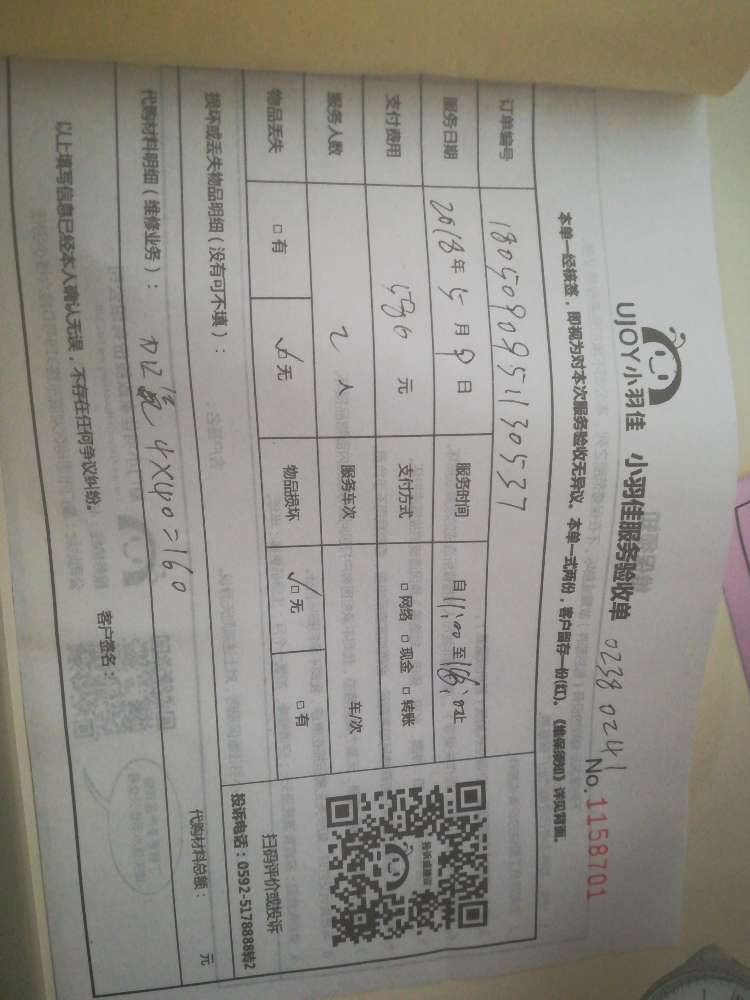 UJOY小羽佳 小羽佳服务验收单 0238 0241
No.1158701
本单一经核签，即视为对本次服务验收无异议。本单一式两份，客户留存一份(红)。《维保须知》详见背面。
订单编号 18050909551130537
服务日期 2018年5月9日 服务时间 自11:00至 止
支付费用 元 支付方式 □网络 □现金 □转账
服务人数 2人 服务车次 车/次
物品丢失 □有 ☑无 物品损坏 ☑无 □有
损坏或丢失物品明细（没有可不填）：
投诉或建议
扫码评价或投诉
投诉电话：0592-5178888转2
代购材料明细（维修业务）： 4×40=160 代购材料总额： 元
以上填写信息已经本人确认无误，不存在任何争议纠纷。 客户签名：